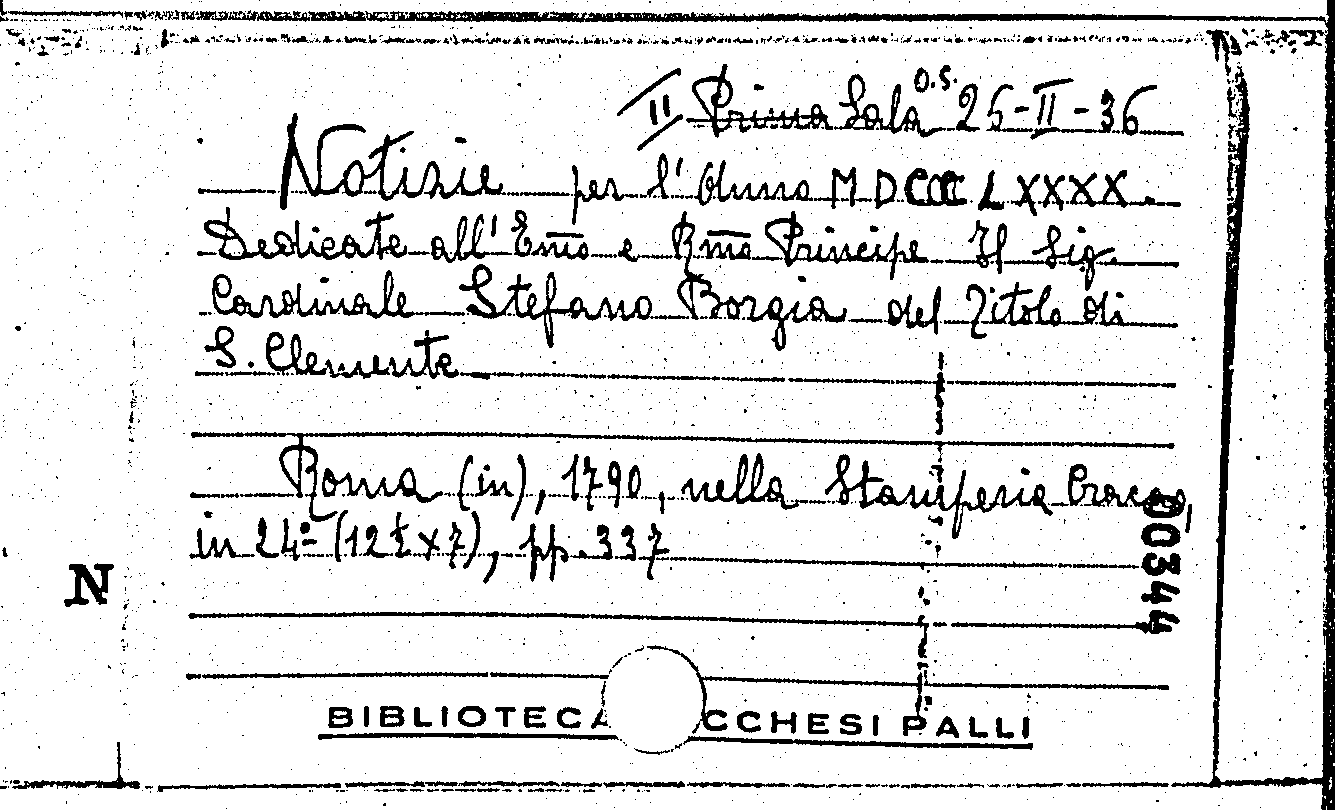 II Prima Sala O.S. 25-II-36
Notizie per l'Anno MDCCLXXXX.
Dedicate all'Emo e Rmo Principe Il Sig.
Cardinale Stefano Borgia del Titolo di
S. Clemente
Roma (in), 1790, nella Stamperia Cracas
in 24° (12½x7), pp. 337
N
00344
BIBLIOTECA CCHESI PALLI